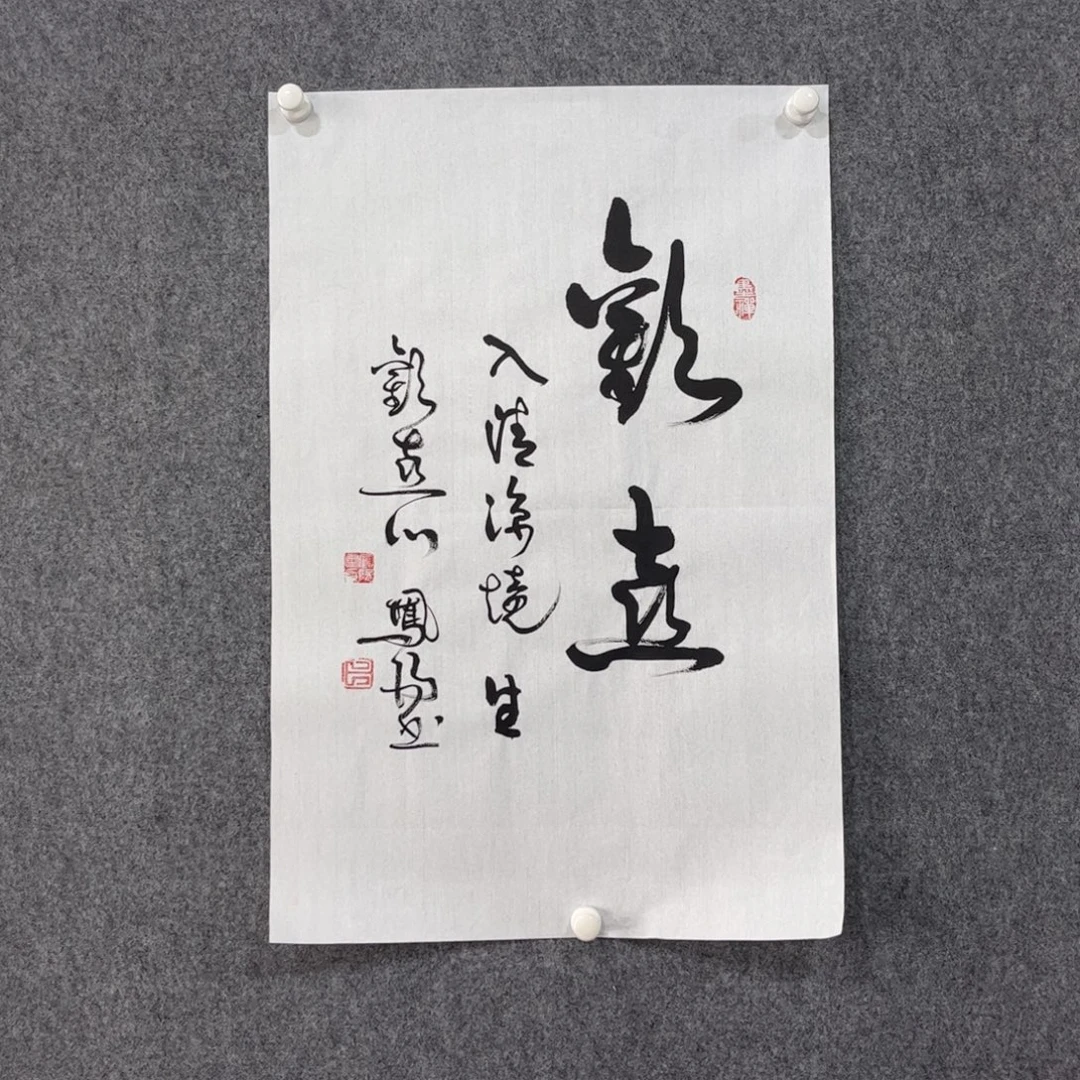 歡喜
入清涼境生
歡喜心 鳳陽書